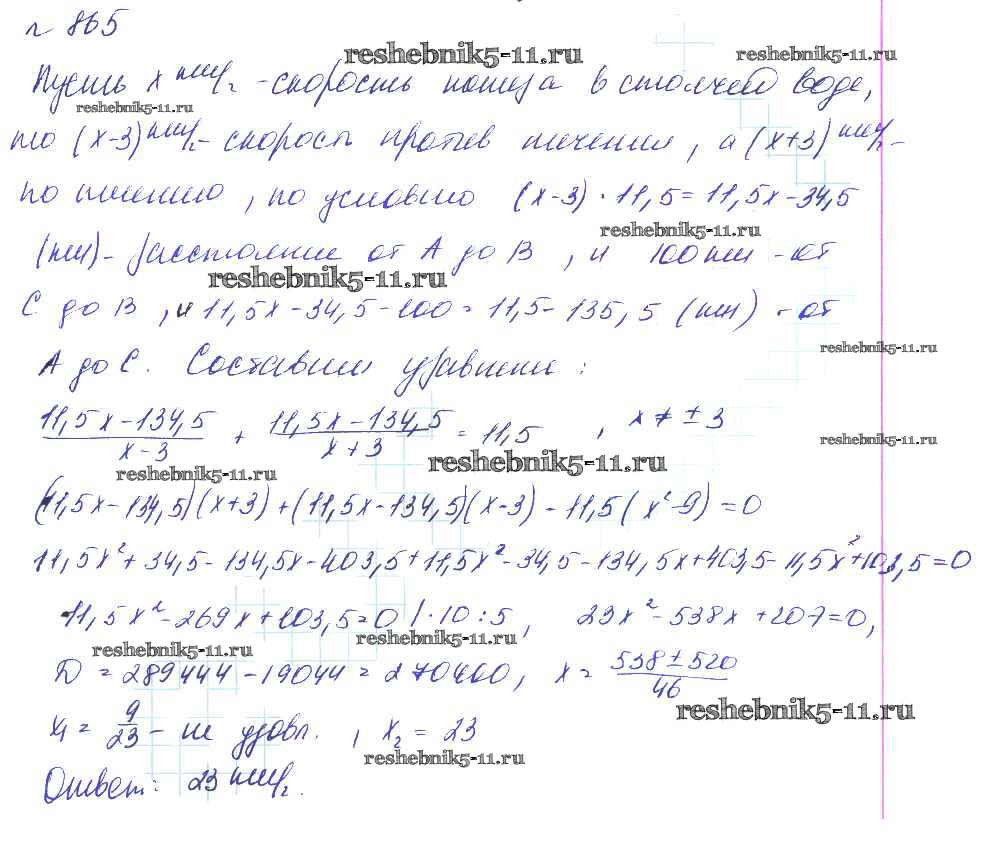 № 865
reshebnik5-11.ru
reshebnik5-11.ru
Пусть x км/ч - скорость катера в стоячей воде,
reshebnik5-11.ru
то (x-3) км/ч - скорость против течения, а (x+3) км/ч -
по течению, по условию (x-3) · 11,5 = 11,5x - 34,5
reshebnik5-11.ru
(км) - расстояние от A до B, и 100 км - от
reshebnik5-11.ru
C до B, и 11,5x - 34,5 - 100 = 11,5 - 135,5 (км) - от
reshebnik5-11.ru
A до C. Составим уравнение:
(11,5x - 134,5)/(x - 3) + (11,5x - 134,5)/(x + 3) = 11,5, x ≠ ± 3
reshebnik5-11.ru
reshebnik5-11.ru
reshebnik5-11.ru
(11,5x - 134,5)(x+3) + (11,5x - 134,5)(x-3) - 11,5(x² - 9) = 0
11,5x² + 34,5 - 134,5x - 403,5 + 11,5x² - 34,5 - 134,5x + 403,5 - 11,5x² + 103,5 = 0
11,5x² - 269x + 103,5 = 0 / · 10 : 5, 23x² - 538x + 207 = 0,
reshebnik5-11.ru
reshebnik5-11.ru
D = 289444 - 19044 = 270400, x = (538 ± 520)/46
reshebnik5-11.ru
x₁ = 9/23 - не удовл., x₂ = 23
reshebnik5-11.ru
Ответ: 23 км/ч.